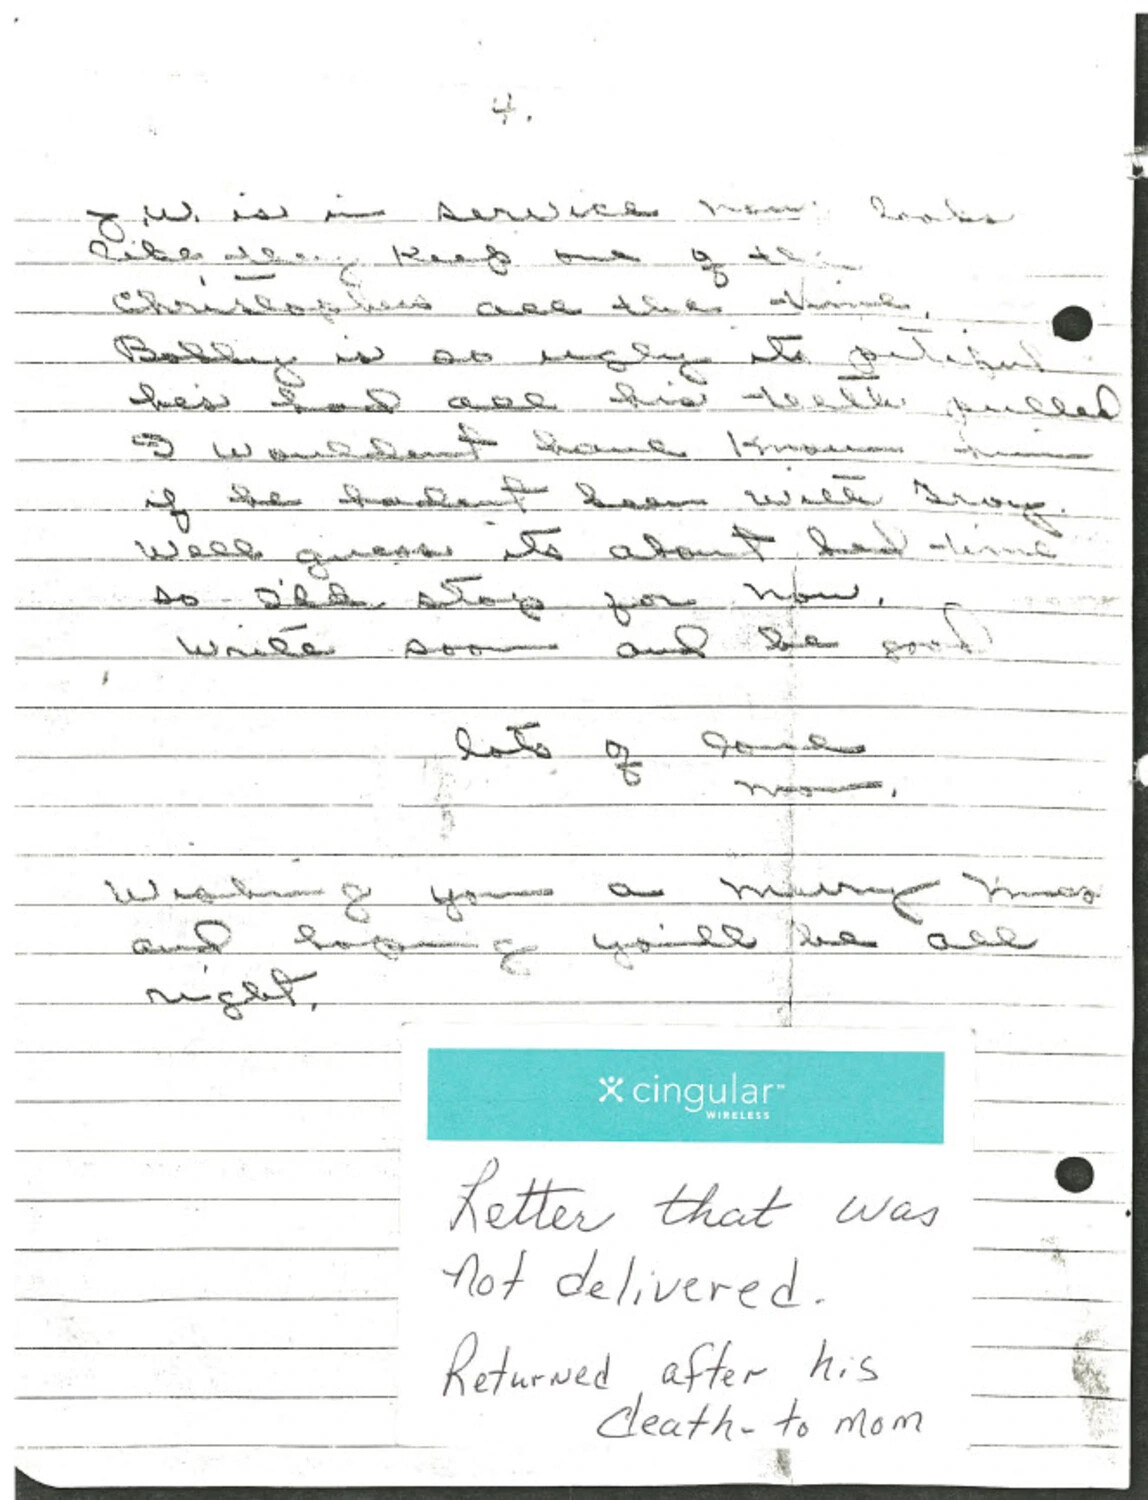 4.
J.W. is in service now looks
like they keep one of the
Christophers all the time.
Bobby is so ugly its pitiful
he's had all his teeth pulled
I wouldent have known him
if he hadent been with Troy.
Well guess its about bed time
so I'll stop for now.
Write soon and be good
lots of love
mom.
Wishing you a merry Xmas
and hoping you'll be all
right.
cingular™
WIRELESS
Letter that was
not delivered.
Returned after his
death- to mom